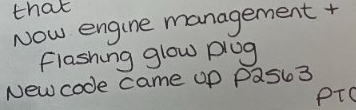 that
Now engine management +
flashing glow plug
New code came up P2563
PTO